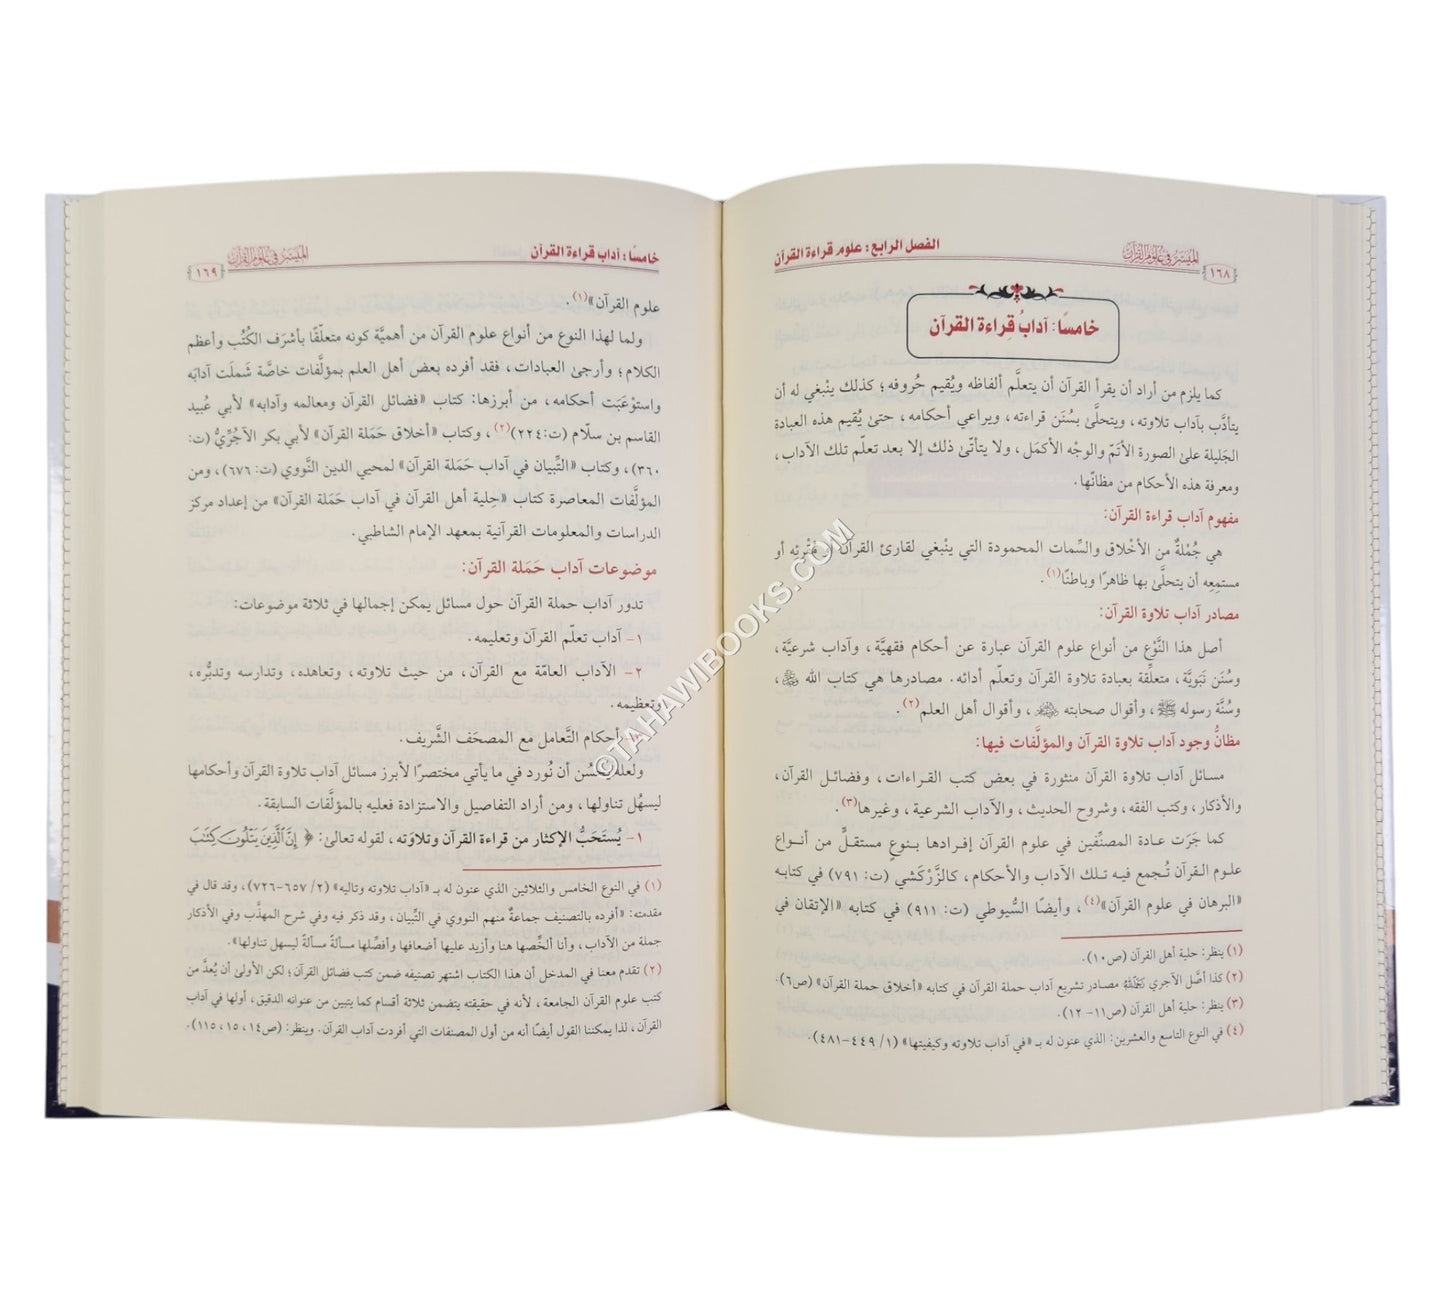 الميسر في علوم القرآن
١٦٨
الفصل الرابع: علوم قراءة القرآن
خامسًا: آدابُ قِراءة القرآن
كما يلزم من أراد أن يقرأ القرآن أن يتعلَّم ألفاظه ويُقيم حُروفه؛ كذلك ينْبغي له أن
يتأدَّب بآداب تلاوته، ويتحلَّىٰ بسُنَن قراءته، ويراعي أحكامه، حتىٰ يُقيم هذه العبادة
الجَليلة علىٰ الصورة الأتمّ والوجْه الأكمَل، ولا يتأتّىٰ ذلك إلا بعد تعلّم تلك الآداب،
ومعرفة هذه الأحكام من مظانّها.
مفهوم آداب قراءة القرآن:
هي جُمْلةٌ من الأخْلاق والسِّمات المحمودة التي ينْبغي لقارئ القرآن أو مُقْرئِه أو
مستمِعِه أن يتحلَّىٰ بها ظاهرًا وباطنًا(١).
مصادر آداب تلاوة القرآن:
أصل هذا النَّوْع من أنواع علوم القرآن عبارة عن أحكام فقهيَّة، وآداب شرعيَّة،
وسُنَن نَبَويَّة، متعلِّقة بعبادة تلاوة القرآن وتعلّم أدائه. مصادرها هي كتاب الله ﷻ،
وسُنَّة رسوله ﷺ، وأقوال صحابته، وأقوال أهل العلم(٢).
مظانُّ وجود آداب تلاوة القرآن والمؤلَّفات فيها:
مسائل آداب تلاوة القرآن منثورة في بعض كتب القراءات، وفضائل القرآن،
والأذكار، وكتب الفقه، وشروح الحديث، والآداب الشرعية، وغيرها(٣).
كما جَرَت عادة المصنِّفين في علوم القرآن إفرادها بنوعٍ مستقلٍّ من أنواع
علوم القرآن تُجمع فيه تلك الآداب والأحكام، كالزَّرْكَشي (ت: ٧٩١) في كتابه
«البرهان في علوم القرآن»(٤)، وأيضًا السُّيوطي (ت: ٩١١) في كتابه «الإتقان في
(١) ينظر: حلية أهل القرآن (ص١٠).
(٢) كذا أصَّل الآجري رَحِمَهُ اللهُ مصادر تشريع آداب حملة القرآن في كتابه «أخلاق حملة القرآن» (ص٦).
(٣) ينظر: حلية أهل القرآن (ص١١- ١٢).
(٤) في النوع التاسع والعشرين: الذي عنون له بـ «في آداب تلاوته وكيفيتها» (١/ ٤٤٩-٤٨١).
خامسًا: آداب قراءة القرآن
الميسر في علوم القرآن
١٦٩
علوم القرآن»(١).
ولما لهذا النوع من أنواع علوم القرآن من أهميَّة كونه متعلّقا بأشرَف الكُتُب وأعظم
الكلام؛ وأرجىٰ العبادات، فقد أفرده بعض أهل العلم بمؤلَّفات خاصَّة شَملَت آدابَه
واستوْعَبَت أحكامه، من أبرزها: كتاب «فضائل القرآن ومعالمه وآدابه» لأبي عُبيد
القاسم بن سلّام (ت:٢٢٤)(٢)، وكتاب «أخلاق حَمَلة القرآن» لأبي بكر الآجُرِّيُّ (ت:
٣٦٠)، وكتاب «التِّبيان في آداب حَمَلة القرآن» لمحيي الدين النَّووي (ت: ٦٧٦)، ومن
المؤلَّفات المعاصرة كتاب «حِلية أهل القرآن في آداب حَمَلة القرآن» من إعداد مركز
الدراسات والمعلومات القرآنية بمعهد الإمام الشاطبي.
موضوعات آداب حَمَلة القرآن:
تدور آداب حملة القرآن حول مسائل يمكن إجمالها في ثلاثة موضوعات:
١- آداب تعلّم القرآن وتعليمه.
٢- الآداب العامّة مع القرآن، من حيث تلاوته، وتعاهده، وتدارسه وتدبُّره،
وتعظيمه.
أحكام التَّعامل مع المصحَف الشَّريف.
ولعله يَحْسُن أن نُورد في ما يأتي مختصرًا لأبرز مسائل آداب تلاوة القرآن وأحكامها
ليسهُل تناولها، ومن أراد التفاصيل والاستزادة فعليه بالمؤلَّفات السابقة.
١- يُستَحَبُّ الإكثار من قراءة القرآن وتلاوَته، لقوله تعالىٰ: ﴿ إِنَّ ٱلَّذِينَ يَتْلُونَ كِتَٰبَ
(١) في النوع الخامس والثلاثين الذي عنون له بـ «آداب تلاوته وتاليه» (٢/ ٦٥٧-٧٢٦)، وقد قال في
مقدمته: «أفرده بالتصنيف جماعةٌ منهم النووي في التِّبيان، وقد ذكر فيه وفي شرح المهذَّب وفي الأذكار
جملة من الآداب، وأنا ألخِّصها هنا وأزيد عليها أضعافها وأفصِّلها مسألةً مسألةً ليسهل تناولها».
(٢) تقدم معنا في المدخل أن هذا الكتاب اشتهر تصنيفه ضمن كتب فضائل القرآن؛ لكن الأولىٰ أن يُعدَّ من
كتب علوم القرآن الجامعة، لأنه في حقيقته يتضمن ثلاثة أقسام كما يتبين من عنوانه الدقيق، أولها في آداب
القرآن، لذا يمكننا القول أيضًا أنه من أول المصنفات التي أفردت آداب القرآن. وينظر: (ص١٤، ١٥، ١١٥).
©TAHAWIBOOKS.COM